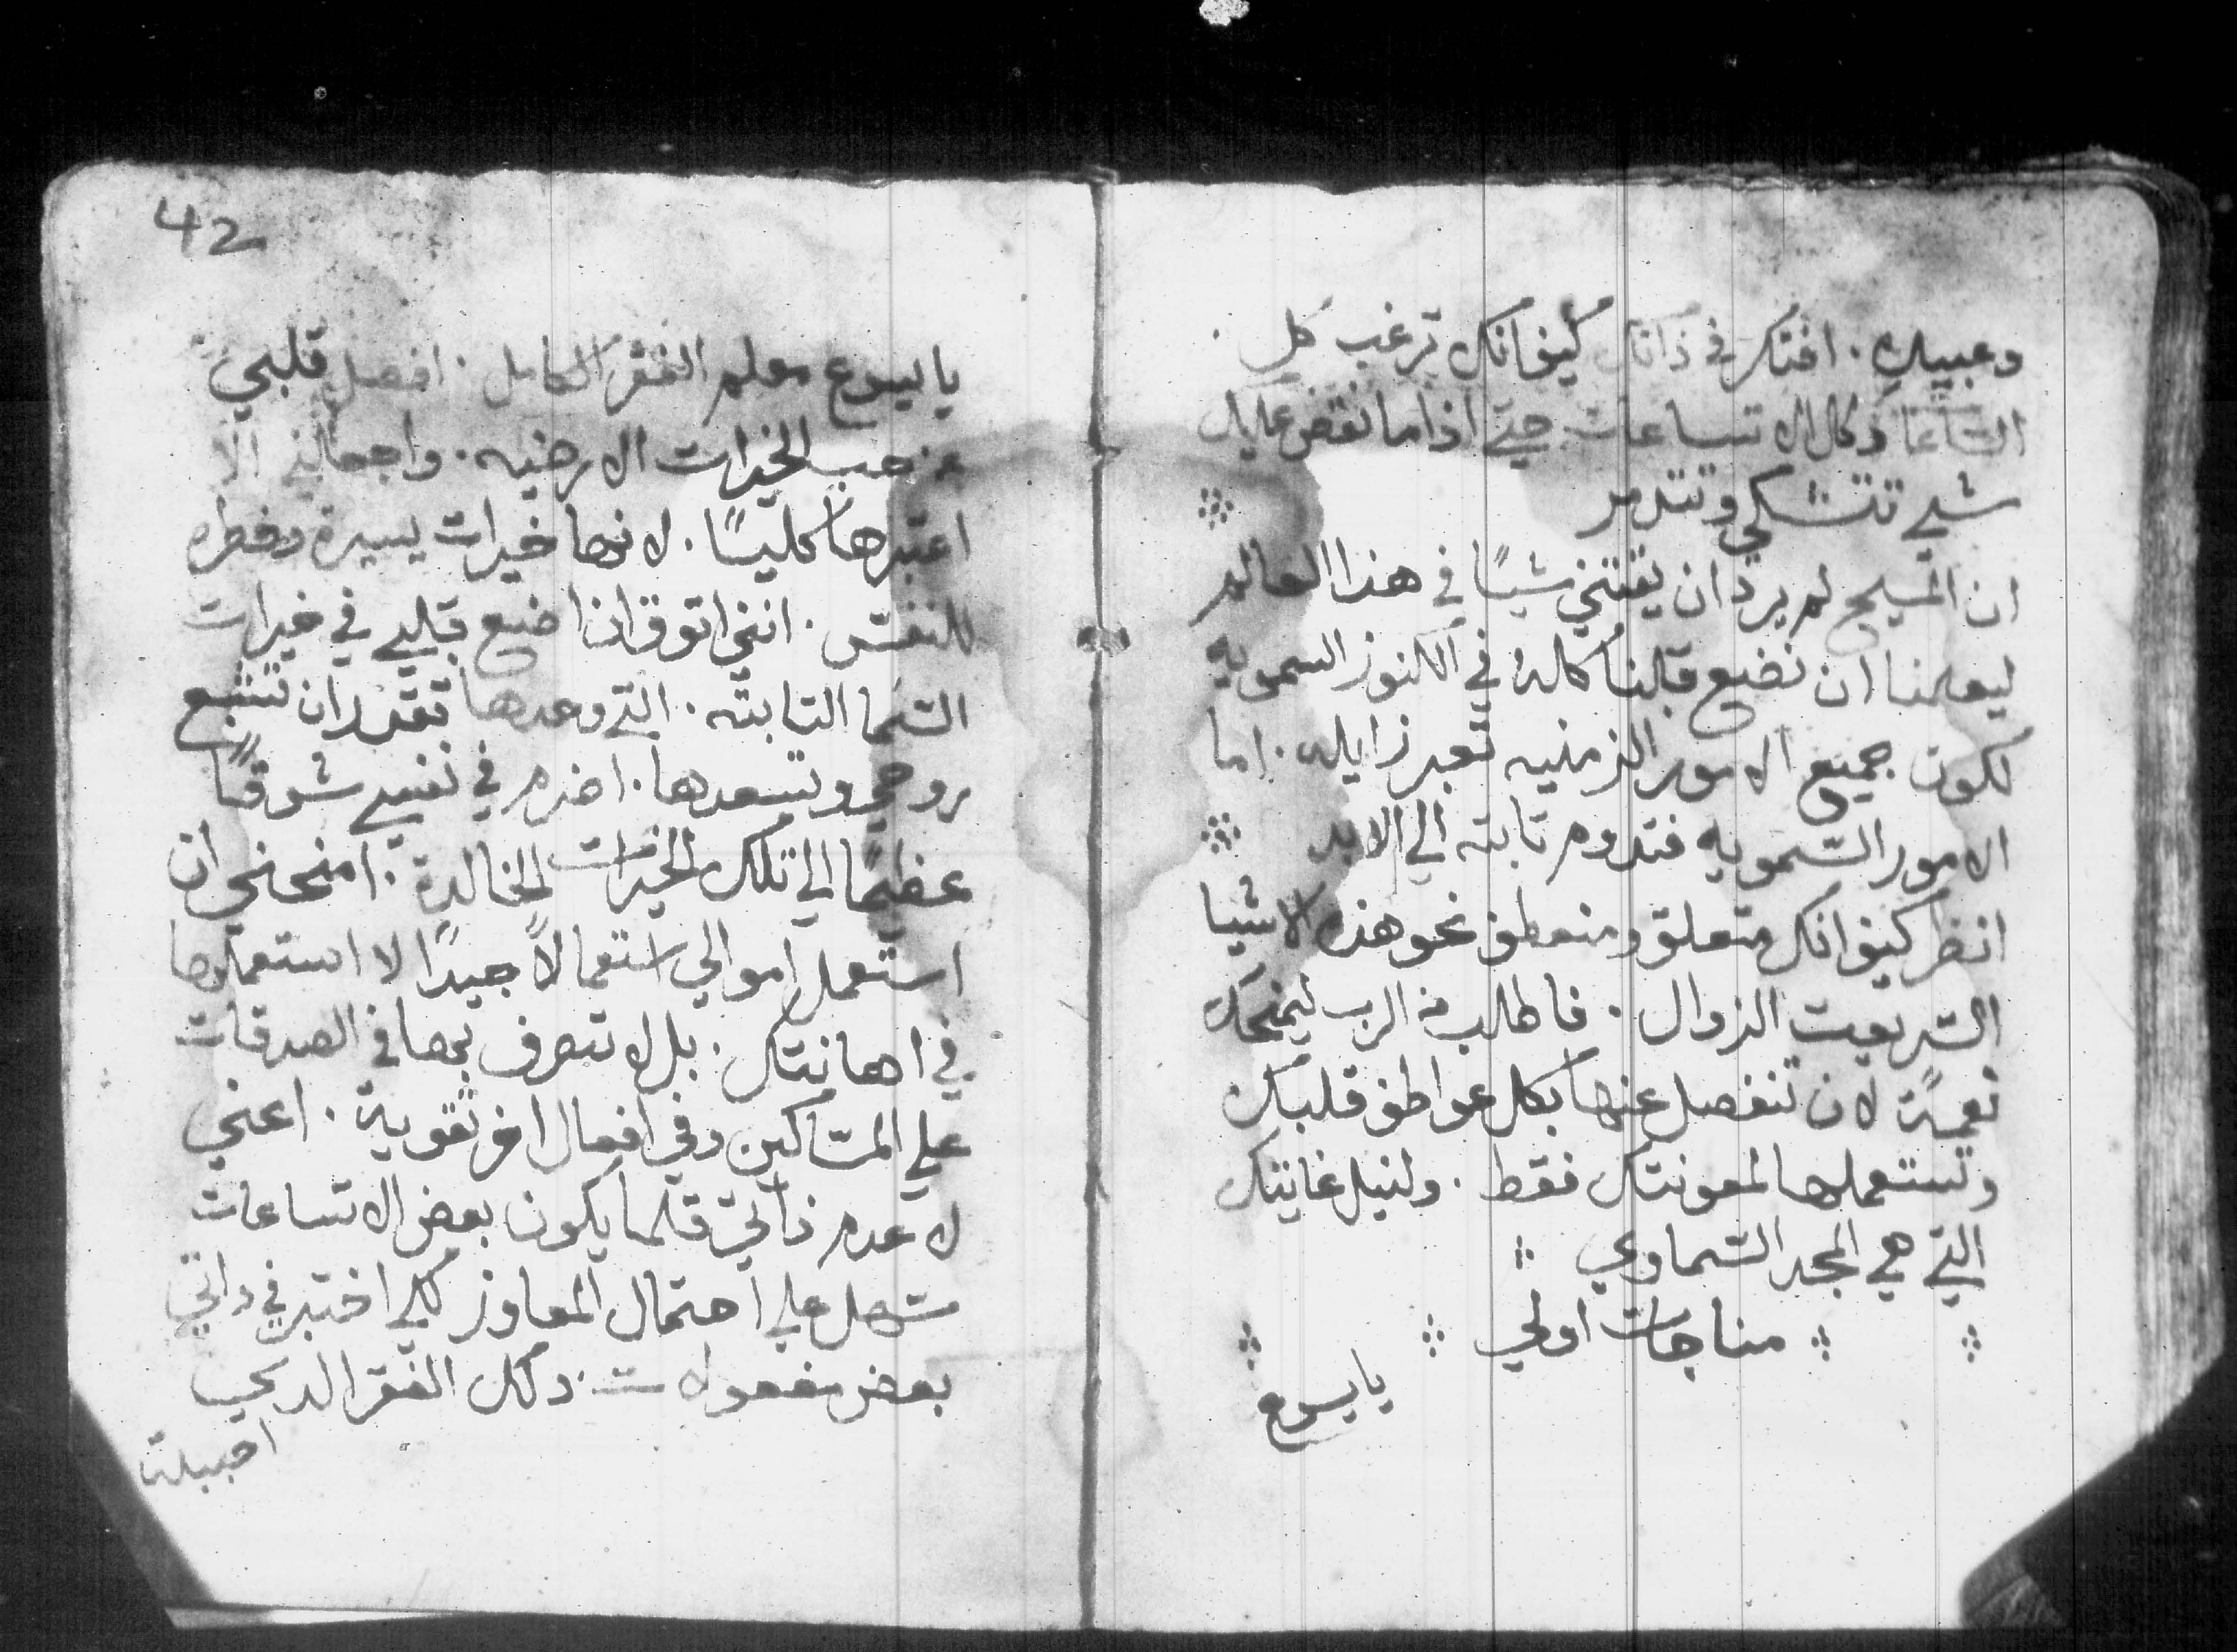 وعبيدك. افتكر في ذاتك كيف انك ترغب كل
الساعا وكل الاتساعات حتي اذا ما نقض عليك
شي تتشكي وتتدمر
ان المسيح لم يرد ان يقتني شيًا في هذا العالم
ليعلمنا ان نضع قلبنا كله في الكنوز السمويه
لكون جميع الامور الزمنيه تعبر زايله. اما
الامور السمويه فتدوم تابته الي الابد
انظر كيف انك متعلق ومنعطف نحو هذه الاشيا
السريعت الزوال. فاطلب من الرب ليمنحك
نعمةً لان تنفصل عنها بكل عواطف قلبك
وتستعملها لمعونتك فقط. ولنيل غايتك
التي هي المجد السماوي
مناجات اولي
يا يسوع
42
يا يسوع معلم الفقر الكامل. افصل قلبي
من حب الخيرات الارضيه. واجعلني الا
اعتبرها كليًا. لانها خيرات يسيرة وخطره
للنفس. انني اتوق ان اضع قلبي في خيرات
السما التابته. التي وحدها تقدر ان تشبع
روحي وتسعدها. اضرم في نفسي شوقًا
عظيمًا الي تلك الخيرات الخالدة. امنحني ان
استعمل اموالي استعمالاً جيدًا لا استعملها
في اهانتك. بل لاتصرف بها في الصدقات
علي المساكين وفي افعال اخر تقوية. اعني
لاعدم ذاتي قلما يكون بعض الاتساعات
سهل علي احتمال المعاوز لكي اختبر في داتي
بعض مفعولات دلك الفقر الدي
احببته